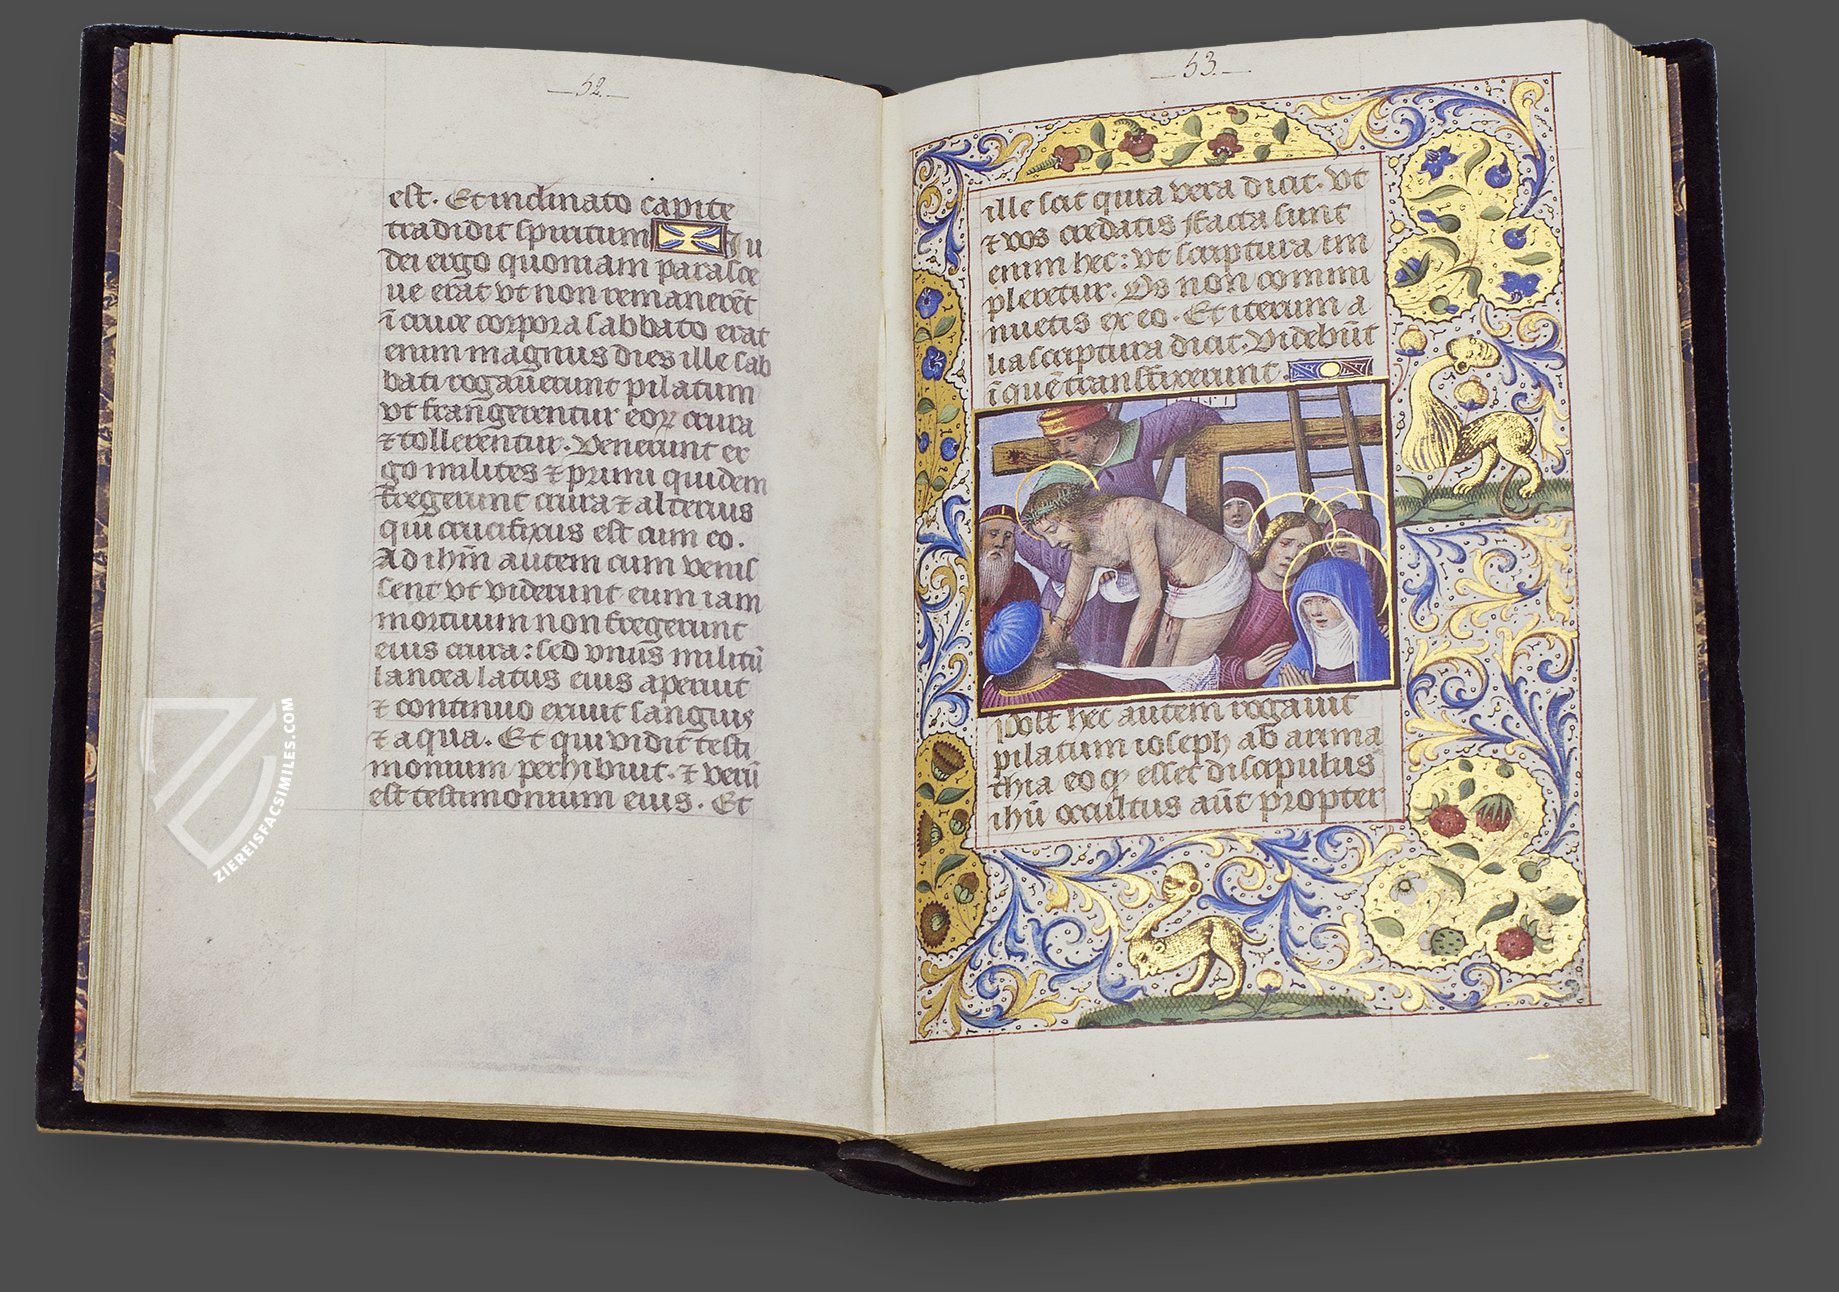 52.
est. Et inclinato capite
tradidit spiritum Iu
dei ergo quoniam parasce
ue erat vt non remanerēt
ī cruce corpora sabbato erat
enim magnus dies ille sab
bati rogauerunt pilatum
vt frangerentur eoꝝ crura
⁊ tollerentur. Venerunt er
go milites ⁊ primi quidem
fregerunt crura ⁊ alterius
qui crucifixus est cum eo.
Ad ihm̄ autem cum venis
sent vt viderunt eum iam
mortuum non fregerunt
eius crura: sed vnus militū
lancea latus eius aperuit
⁊ continuo exiuit sanguis
⁊ aqua. Et qui vidit testi
monium perhibuit. ⁊ verū
est testimonium eius. Et
ZIEREISFACSIMILES.COM
53.
ille scit quia vera dicit. vt
⁊ vos credatis facta sunt
enim hec: vt scriptura im
pleretur. Os non commi
nuetis ex eo. Et iterum a
lia scriptura dicit. Videbūt
ī quē transfixerunt.
post hec autem rogauit
pilatum ioseph ab arima
thia eo qꝫ esset discipulus
ihū occultus aūt propter